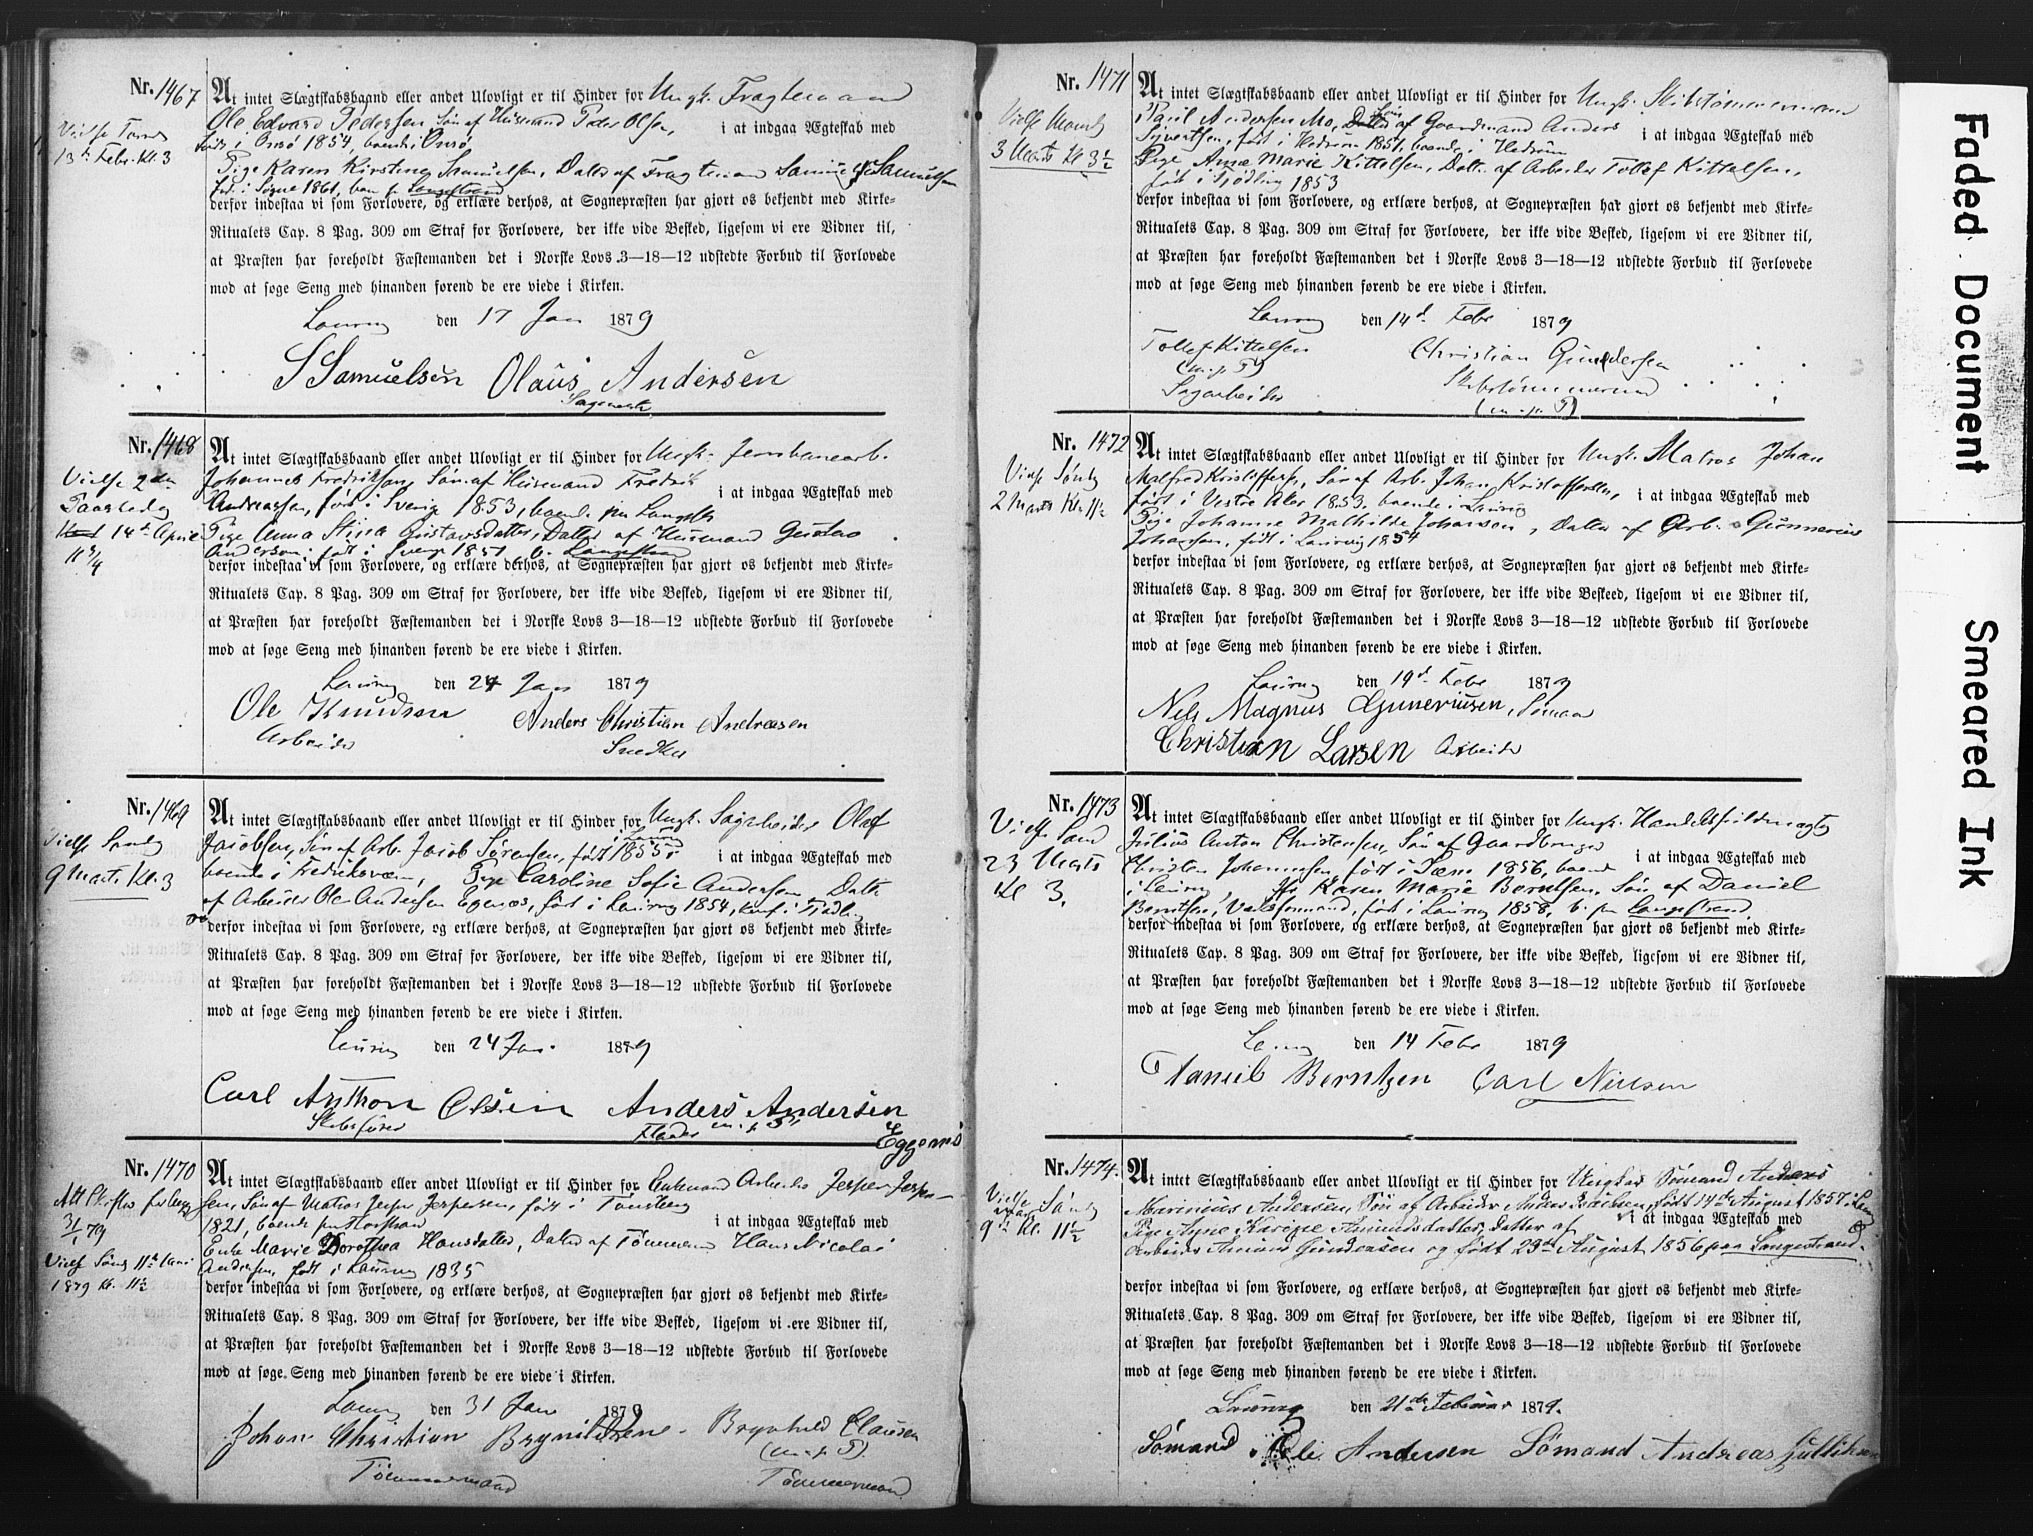 Nr. 1467
Vielse
13de Febr. Kl. 3
At intet Slægtskabsbaand eller andet Ulovligt er til Hinder for Ungk. Fragtemand
Ole Edvard Pedersen Søn af Husmand Peder Olsen, i at indgaa Ægteskab med
født i Onsø 1854, boende i Onsø
Pige Karen Kirstine Samuelsen, Datter af Fragtemand Samuel Samuelsen
født i Søgne 1861, boe p. Langestrand
derfor indestaa vi som Forlovere, og erklære derhos, at Sognepræsten har gjort os bekjendt med Kirke-
Ritualets Cap. 8 Pag. 309 om Straf for Forlovere, der ikke vide Besked, ligesom vi ere Vidner til,
at Præsten har foreholdt Fæstemanden det i Norske Lovs 3—18—12 udstedte Forbud til Forlovede
mod at søge Seng med hinanden førend de ere viede i Kirken.
Laurvig den 17 Jan 1879
S Samuelsen Olaus Andersen
Nr. 1468
Vielse 2den
Paaskedag
14de April
11 3/4
At intet Slægtskabsbaand eller andet Ulovligt er til Hinder for Ungk. Jernbanearb.
Johannes Fredriksen, Søn af Husmand Fredrik i at indgaa Ægteskab med
Andreassen, født i Sverige 1853, boende paa Langestr.
Pige Anna Stina Gustavsdatter, Datter af Husmand Gustav
Anderson, født i Sverge 1851, b. Langestrand
derfor indestaa vi som Forlovere, og erklære derhos, at Sognepræsten har gjort os bekjendt med Kirke-
Ritualets Cap. 8 Pag. 309 om Straf for Forlovere, der ikke vide Besked, ligesom vi ere Vidner til,
at Præsten har foreholdt Fæstemanden det i Norske Lovs 3—18—12 udstedte Forbud til Forlovede
mod at søge Seng med hinanden førend de ere viede i Kirken.
Laurvig den 24 Jan 1879
Ole Knudsen Anders Christian Andreasen
Arbeider Snedker
Nr. 1469
Vielse Søndg
9 Marts Kl. 3
At intet Slægtskabsbaand eller andet Ulovligt er til Hinder for Ungk. Sagarbeider Olaf
Jacobsen, Søn af Arb. Jacob Sørensen, født i Laurvig 1855, i at indgaa Ægteskab med
boende i Fredriksværn, Pige Caroline Sofie Andersen, Datter
af Arbeider Ole Andersen Egenæs, født i Laurvig 1854, konf. i Tjødling
derfor indestaa vi som Forlovere, og erklære derhos, at Sognepræsten har gjort os bekjendt med Kirke-
Ritualets Cap. 8 Pag. 309 om Straf for Forlovere, der ikke vide Besked, ligesom vi ere Vidner til,
at Præsten har foreholdt Fæstemanden det i Norske Lovs 3—18—12 udstedte Forbud til Forlovede
mod at søge Seng med hinanden førend de ere viede i Kirken.
Laurvig den 24 Jan. 1879
Carl Anthon Olsen Anders Andersen
Skibsfører m. p. P.
Eggenæs
Nr. 1470
Att. Skifter forlagt
31/1 79
Vielse Søndg 11te
1879 Kl. 11½
At intet Slægtskabsbaand eller andet Ulovligt er til Hinder for Enkemand Arbeider Jesper Jesper-
sen, Søn af Matros Jesper Jespersen, født i Tønsberg
1821, boende paa Torstrand i at indgaa Ægteskab med
Enke Marie Dorothea Hansdatter, Datter af Tømmermand Hans Nicolai
Andersen, født i Laurvig 1835
derfor indestaa vi som Forlovere, og erklære derhos, at Sognepræsten har gjort os bekjendt med Kirke-
Ritualets Cap. 8 Pag. 309 om Straf for Forlovere, der ikke vide Besked, ligesom vi ere Vidner til,
at Præsten har foreholdt Fæstemanden det i Norske Lovs 3—18—12 udstedte Forbud til Forlovede
mod at søge Seng med hinanden førend de ere viede i Kirken.
Laurvig den 31 Jan 1879
Johan Christian Brynildsene Brynhild Clausen
(m. p. P.)
Tømmermand Tømmermand
Nr. 1471
Vielse Mandg
3 Marts Kl 3½
At intet Slægtskabsbaand eller andet Ulovligt er til Hinder for Ungk. Skibstømmermand
Paul Andersen Mo, Søn af Gaardmand Anders i at indgaa Ægteskab med
Syvertsen, født i Hedrum 1851, boende i Hedrum
Pige Anne Marie Kittelsen, Datter af Arbeider Tollef Kittelsen,
født i Tjødling 1853
derfor indestaa vi som Forlovere, og erklære derhos, at Sognepræsten har gjort os bekjendt med Kirke-
Ritualets Cap. 8 Pag. 309 om Straf for Forlovere, der ikke vide Besked, ligesom vi ere Vidner til,
at Præsten har foreholdt Fæstemanden det i Norske Lovs 3—18—12 udstedte Forbud til Forlovede
mod at søge Seng med hinanden førend de ere viede i Kirken.
Laurvig den 14de Febr 1879
Tollef Kittelsen Christian Gundersen
(m. p. P) Skibstømmermand
Sagarbeider (m. p. P)
Nr. 1472
Vielse Søndg
2 Marts Kl. 11½
At intet Slægtskabsbaand eller andet Ulovligt er til Hinder for Ungk. Matros Johan
Malfred Kristoffersen, Søn af Arb. Johan Kristoffersen, i at indgaa Ægteskab med
født i Vestre Aker 1853, boende i Laurvig
Pige Johanne Mathilde Johansen, Datter af Arb. Gunnerius
Johansen, født i Laurvig 1854
derfor indestaa vi som Forlovere, og erklære derhos, at Sognepræsten har gjort os bekjendt med Kirke-
Ritualets Cap. 8 Pag. 309 om Straf for Forlovere, der ikke vide Beskeed, ligesom vi ere Vidner til,
at Præsten har foreholdt Fæstemanden det i Norske Lovs 3—18—12 udstedte Forbud til Forlovede
mod at søge Seng med hinanden førend de ere viede i Kirken.
Laurvig den 19de Febr 1879
Nels Magnus Guneriusen, Sømand
Christian Larsen Arbeider
Nr. 1473
Vielse Sønd
23 Marts
Kl 3.
At intet Slægtskabsbaand eller andet Ulovligt er til Hinder for Ungk. Handelsfuldmægtig
Julius Anton Christensen, Søn af Gaardbruger
Christen Johannesen, født i Sæm 1856, boende i at indgaa Ægteskab med
i Laurvig, Karen Marie Berntsen, Søn af Daniel
Berntsen, født i Laurvig 1858, b. paa Langestrand
derfor indestaa vi som Forlovere, og erklære derhos, at Sognepræsten har gjort os bekjendt med Kirke-
Ritualets Cap. 8 Pag. 309 om Straf for Forlovere, der ikke vide Besked, ligesom vi ere Vidner til,
at Præsten har foreholdt Fæstemanden det i Norske Lovs 3—18—12 udstedte Forbud til Forlovede
mod at søge Seng med hinanden førend de ere viede i Kirken.
Laurvig den 14 Febr 1879
Daniel Berntzen Carl Nielsen
Nr. 1474.
Vielse Søndg
9de Kl. 11½
At intet Slægtskabsbaand eller andet Ulovligt er til Hinder for Ungkar Sømand Anders
Marinius Andersen, Søn af Arbeider Anders født 14de August 1857 i Laurvig
Pige Anne Karine Amundsdatter, Datter af i at indgaa Ægteskab med
Arbeider Gundersen og født 23de August 1856 paa Langestrand.
derfor indestaa vi som Forlovere, og erklære derhos, at Sognepræsten har gjort os bekjendt med Kirke-
Ritualets Cap. 8 Pag. 309 om Straf for Forlovere, der ikke vide Besked, ligesom vi ere Vidner til,
at Præsten har foreholdt Fæstemanden det i Norske Lovs 3—18—12 udstedte Forbud til Forlovede
mod at søge Seng med hinanden førend de ere viede i Kirken.
Laurvig den 21de Februar 1879.
Sømand Ole Andersen Sømand Andreas
Faded Document Smeared Ink